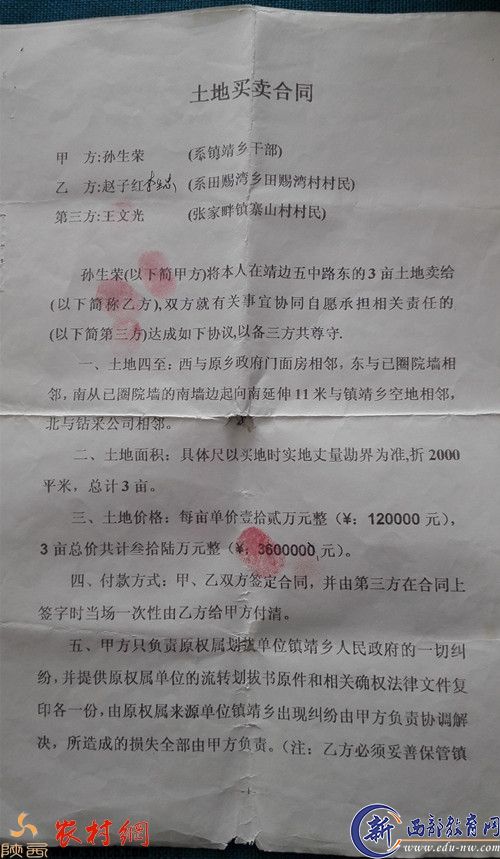 土地买卖合同
甲 方:孙生荣 (系镇靖乡干部)
乙 方:赵子红 (系田赐湾乡田赐湾村村民)
第三方:王文光 (张家畔镇寨山村村民)
孙生荣(以下简甲方)将本人在靖边五中路东的3亩土地卖给
(以下简称乙方),双方就有关事宜协同自愿承担相关责任的
(以下简第三方)达成如下协议,以备三方共尊守.
一、土地四至：西与原乡政府门面房相邻，东与已圈院墙相
邻，南从已圈院墙的南墙边起向南延伸11米与镇靖乡空地相邻，
北与钻采公司相邻。
二、土地面积：具体尺以买地时实地丈量勘界为准,折2000
平米，总计3亩。
三、土地价格：每亩单价壹拾贰万元整（¥：120000元），
3亩总价共计叁拾陆万元整（¥：3600000元）。
四、付款方式：甲、乙双方签定合同，并由第三方在合同上
签字时当场一次性由乙方给甲方付清。
五、甲方只负责原权属划拔单位镇靖乡人民政府的一切纠
纷,并提供原权属单位的流转划拔书原件和相关确权法律文件复
印各一份,由原权属来源单位镇靖乡出现纠纷由甲方负责协调解
决，所造成的损失全部由甲方负责。（注：乙方必须妥善保管镇
- 1 -
陕西 农村網
新 西部教育网
www.edu-nw.com